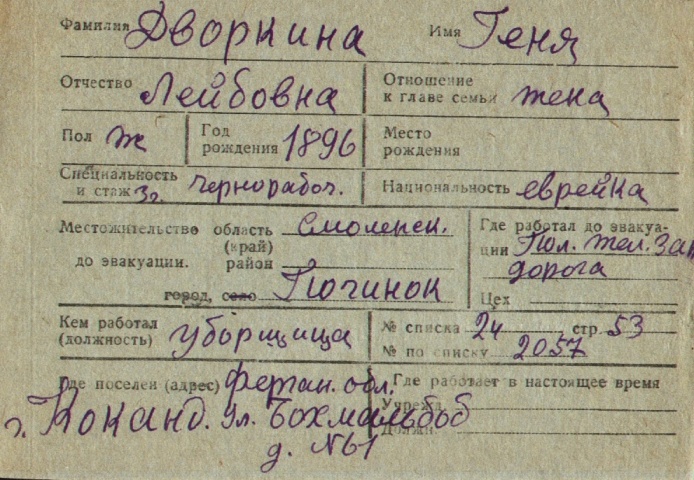 Фамилия Дворкина Имя Геня
Отчество Лейбовна Отношение к главе семьи жена
Пол ж Год рождения 1896 Место рождения
Специальность и стаж 3г. чернорабоч. Национальность еврейка
Местожительство область Смоленск. Где работал до эвакуа-
(край) ции Пол. жел. Зап
до эвакуации. район дорога
город, село Починок Цех
Кем работал (должность) уборщица № списка 24 стр. 53
№ по списку 2057
Где поселен (адрес) Ферган. обл. Где работает в настоящее время
г. Коканд. ул. Бохмальбоб Учрежд.
Должн.
д. №61